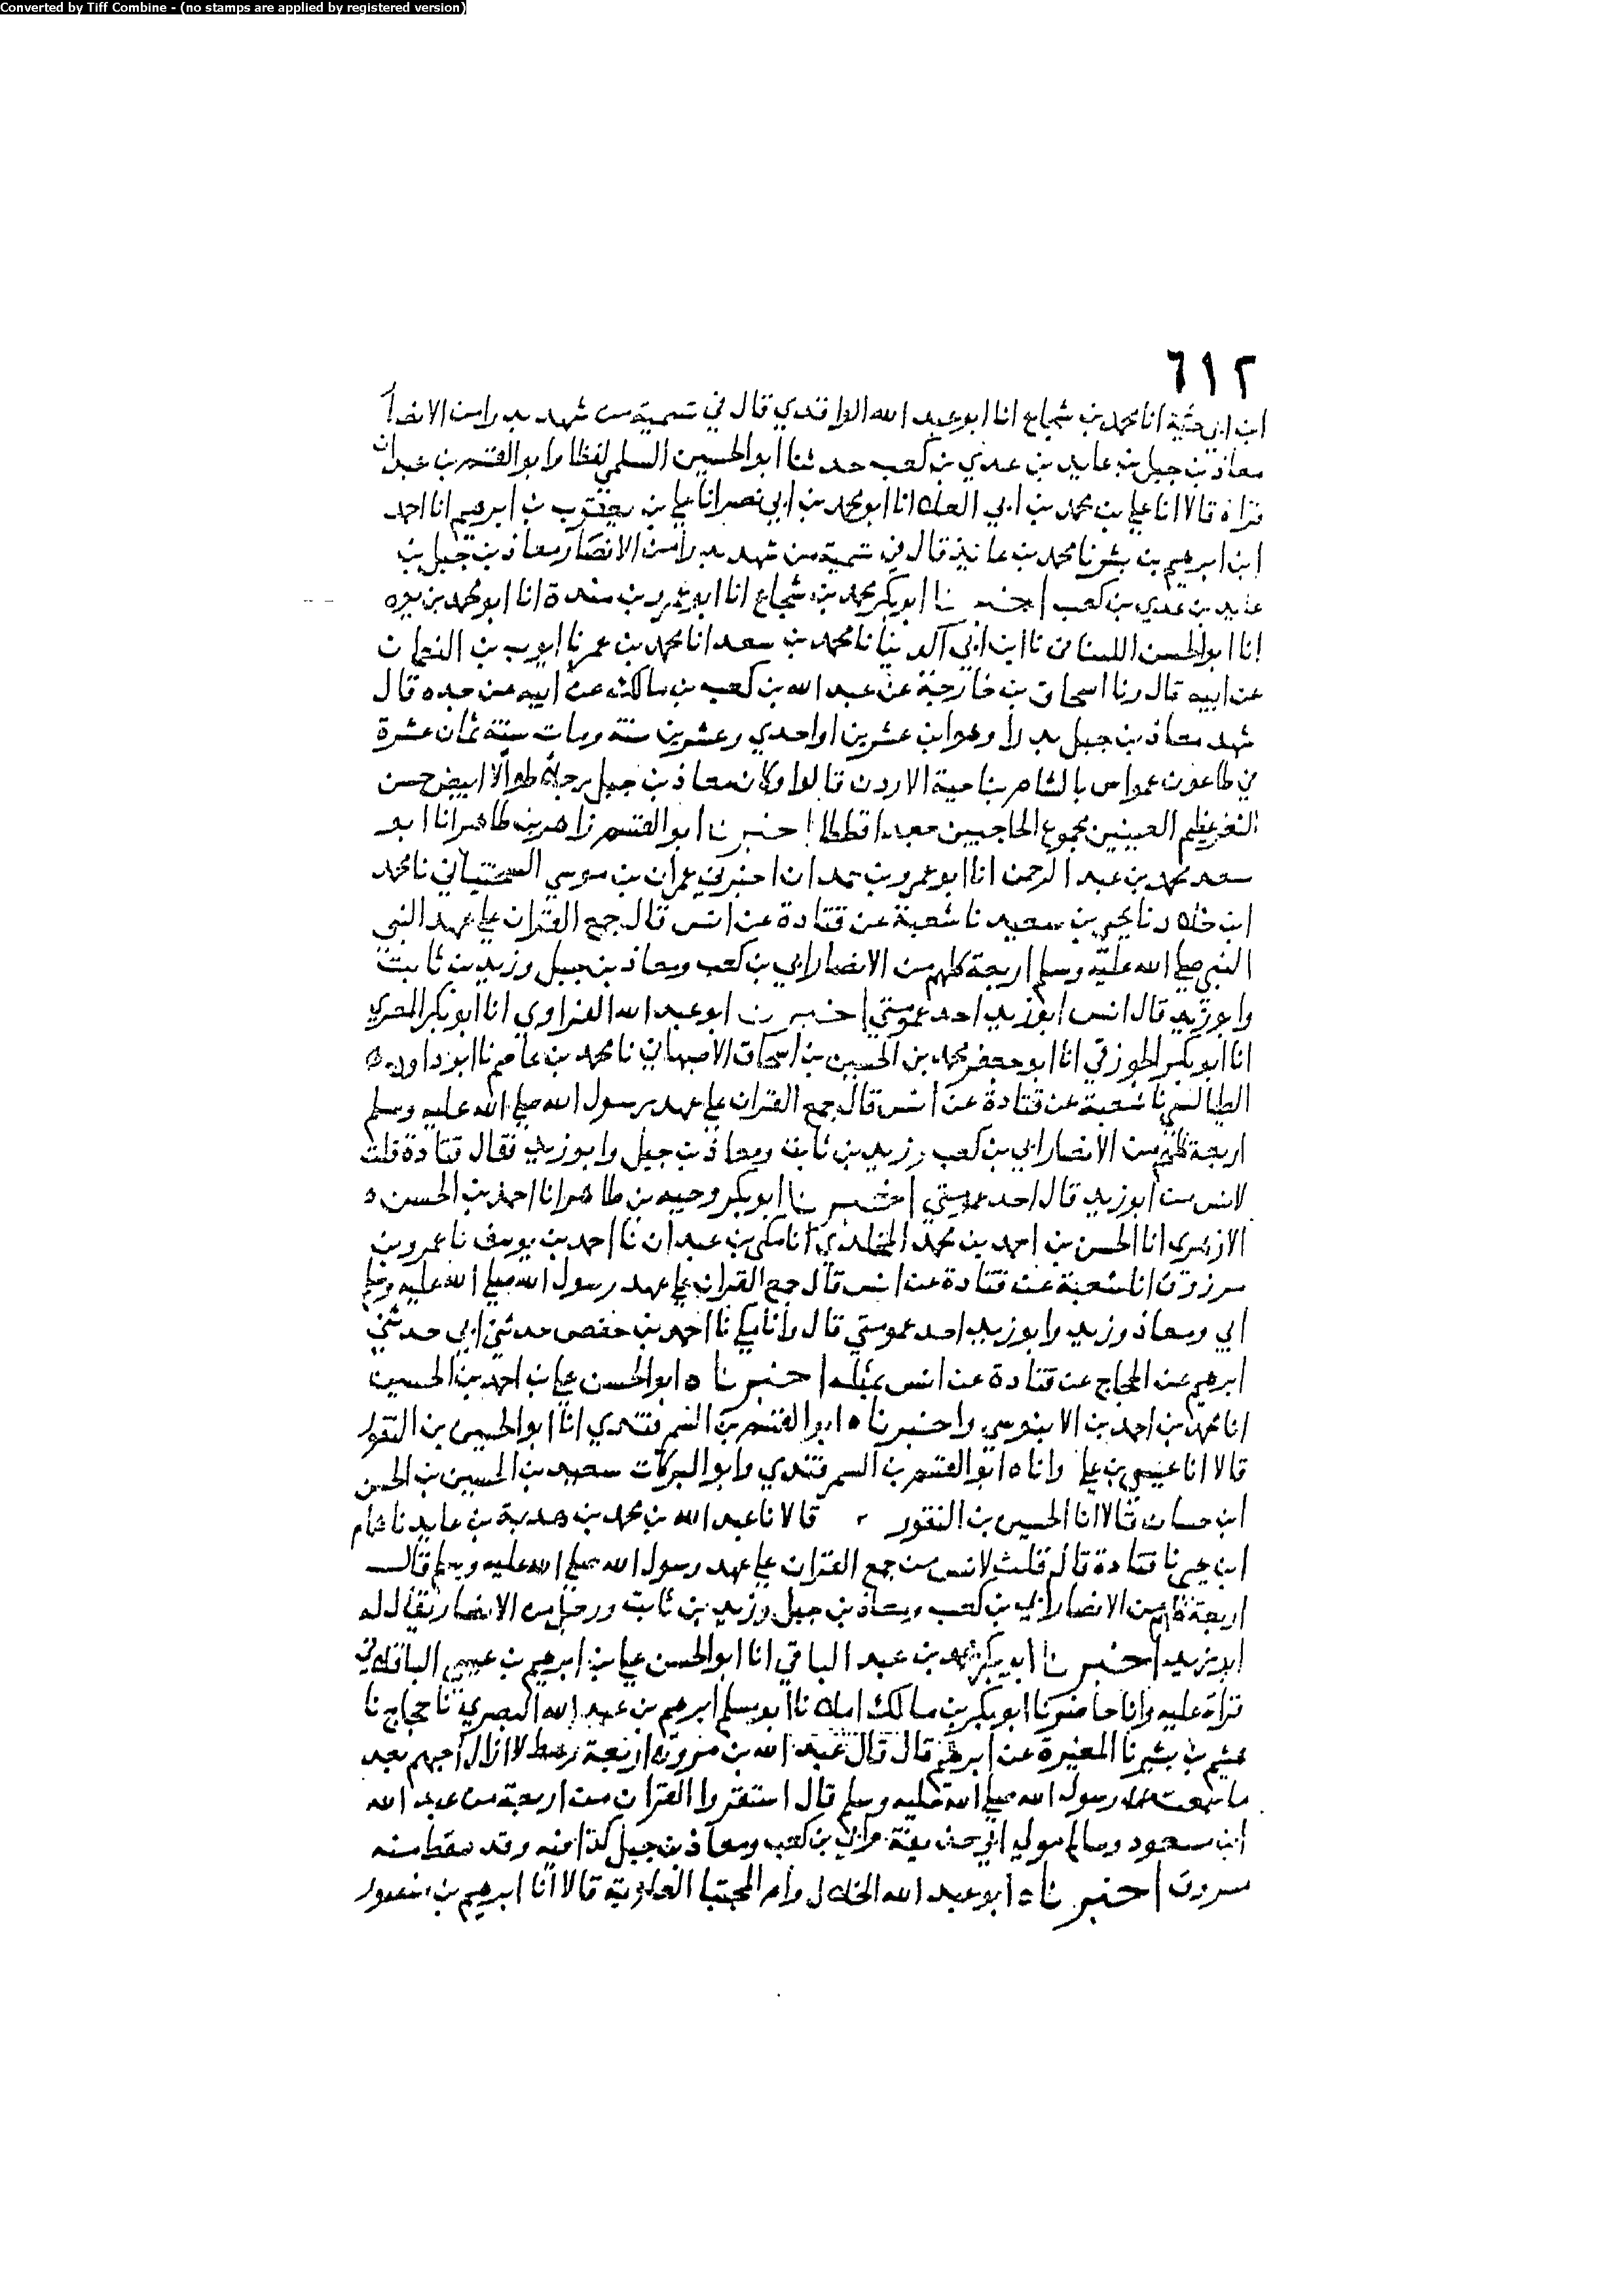 Converted by Tiff Combine - (no stamps are applied by registered version)
٦١٢
ابن ابي حثية انا محمد بن شجاع انا ابو عبد الله الواقدي قال في تسمية من شهد بدرا من الانصا
معاذ بن جبل بن عايد بن عدي بن كعب حدثنا ابو الحسين السلمي لفظا وابو القسم بن عبدان
قراة قالا انا علي بن محمد بن ابي العلاء انا ابو محمد بن ابي نصر انا علي بن يعقوب بن ابرهيم انا احمد
ابن ابرهيم بن بشر نا محمد بن عايذ قال في تسمية من شهد بدرا من الانصار معاذ بن جبل بن
عايد بن عدي بن كعب اخبرنا ابو بكر محمد بن شجاع انا ابو عمرو بن مندة انا ابو محمد بن يوه
انا ابو الحسن اللبناني نا ابن ابي الدنيا نا محمد بن سعد انا محمد بن عمر نا ايوب بن النعمان
عن ابيه قال ونا اسحاق بن خارجة عن عبد الله بن كعب بن مالك عن ابيه عن جده قال
شهد معاذ بن جبل بدرا وهو ابن عشرين او احدي وعشرين سنة ومات سنة ثمان عشرة
في طاعون عمواس بالشام بناحية الاردن قالوا وكان معاذ بن جبل رجلا طوالا ابيض حسن
الثغر عظيم العينين مجموع الحاجبين جعدا قططا اخبرنا ابو القسم زاهر بن طاهر انا ابو
سعد محمد بن عبد الرحمن انا ابو عمرو بن حمدان اخبرني عمران بن موسي السختياني نا محمد
ابن خلاد نا يحيى بن سعيد نا شعبة عن قتادة عن انس قال جمع القران علي عهد النبي
النبي صلي الله عليه وسلم اربعة كلهم من الانصار ابي بن كعب ومعاذ بن جبل وزيد بن ثابت
وابو زيد قال انس ابو زيد احد عمومتي اخبرنا ابو عبد الله الفراوي انا ابو بكر المصري
انا ابو بكر الجوزقي انا ابو جعفر محمد بن الحسين بن اسحاق الاصبهاني نا محمد بن عاصم نا ابو داود
الطيالسي نا شعبة عن قتادة عن انس قال جمع القران علي عهد رسول الله صلي الله عليه وسلم
اربعة كلهم من الانصار ابي بن كعب وزيد بن ثابت ومعاذ بن جبل وابو زيد فقال قتادة قلت
لانس من ابو زيد قال احد عمومتي اخبرنا ابو بكر وجيه بن طاهر انا احمد بن الحسن
الازهري انا الحسن بن احمد بن محمد المخلدي انا مكي بن عبدان نا احمد بن يوسف نا عمرو بن
مرزوق انا شعبة عن قتادة عن انس قال جمع القران علي عهد رسول الله صلي الله عليه وسلم
ابي ومعاذ وزيد وابو زيد احد عمومتي قال وانا مكي نا احمد بن حفص حدثني ابي حدثني
ابرهيم عن الحجاج عن قتادة عن انس بمثله اخبرناه ابو الحسن علي بن احمد بن الحسين
انا محمد بن احمد بن الابنوسي واخبرناه ابو القسم بن السمرقندي انا ابو الحسين بن النقور
قالا انا عيسي بن علي واناه ابو القسم بن السمرقندي وابو البركات سعيد بن الحسين بن الحسن
ابن حسان قالا انا الحسين بن النقور قالا نا عبد الله بن محمد بن هدبة بن عايد نا همام
ابن يحيى نا قتادة قال قلت لانس من جمع القران علي عهد رسول الله صلي الله عليه وسلم قال
اربعة كلهم من الانصار ابي بن كعب ومعاذ بن جبل وزيد بن ثابت ورجل من الانصار يقال له
ابو زيد اخبرنا ابو بكر محمد بن عبد الباقي انا ابو الحسن علي بن ابرهيم بن عيسي الباقلاني
قراة عليه وانا حاضر نا ابو بكر بن مالك املا نا ابو مسلم ابرهيم بن عبد الله البصري نا حجاج نا
هشيم بن بشير نا المغيرة عن ابرهيم قال قال عبد الله بن اربعة رهط لا ازال احبهم بعد
ما سمعت رسول الله صلي الله عليه وسلم قال استقروا القران من اربعة من عبد الله
ابن مسعود وسالم مولي ابي حذيفة وابي بن كعب ومعاذ بن جبل كذا فيه وقد سقط منه
مسروق اخبرناه ابو عبد الله الخلال وام المجتبا العلوية قالا انا ابرهيم بن منصور